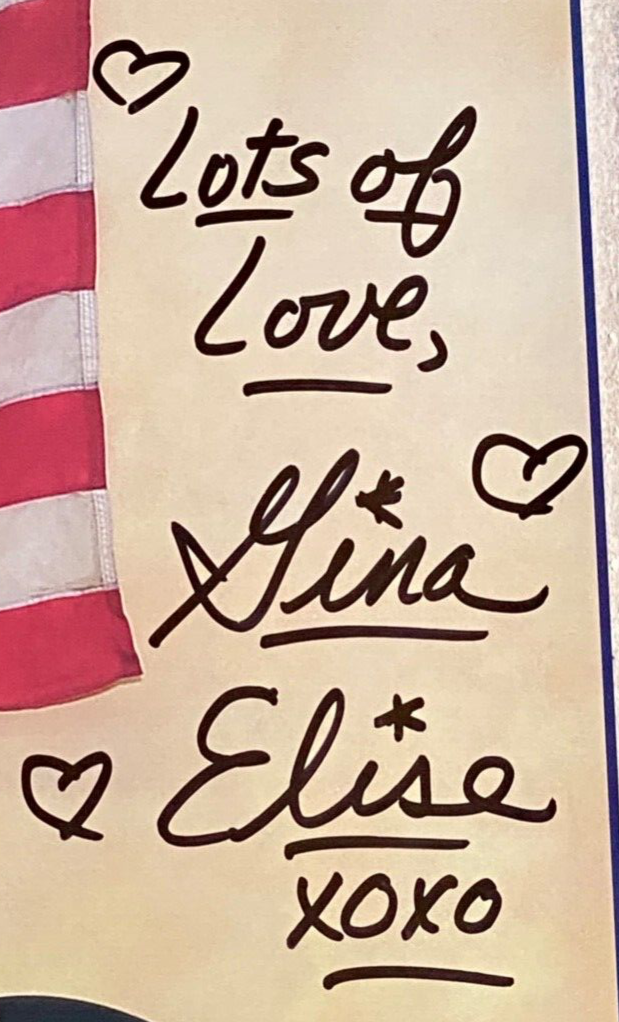 Lots of
Love,
Gina
Elise
xoxo